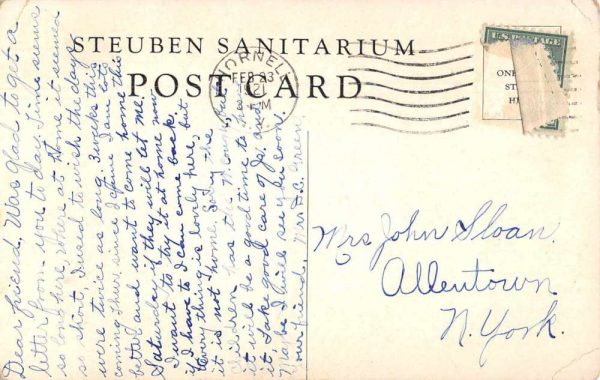 STEUBEN SANITARIUM
POST CARD
HORNELL
FEB 23
1921
M
U.S. POSTAGE
ONE
ST
HE
Dear friend, Was glad to get a
letter from you to-day. Time seems
so long here where at home it seemed
so short. I used to wish the days
were twice as long. 3 weeks this
coming thurs. since I came I am lots
better and want to come home this
Saturday if they will let me.
I want to try it at home now
if I have to I can come back.
Every thing is lovely here, but
it is not home. Sorry the
children has the
it will be a good time to have
it, take good care of
Maybe I will see you soon.
your friend, Mrs. Green.
Mrs John Sloan.
Allentown
N. York.